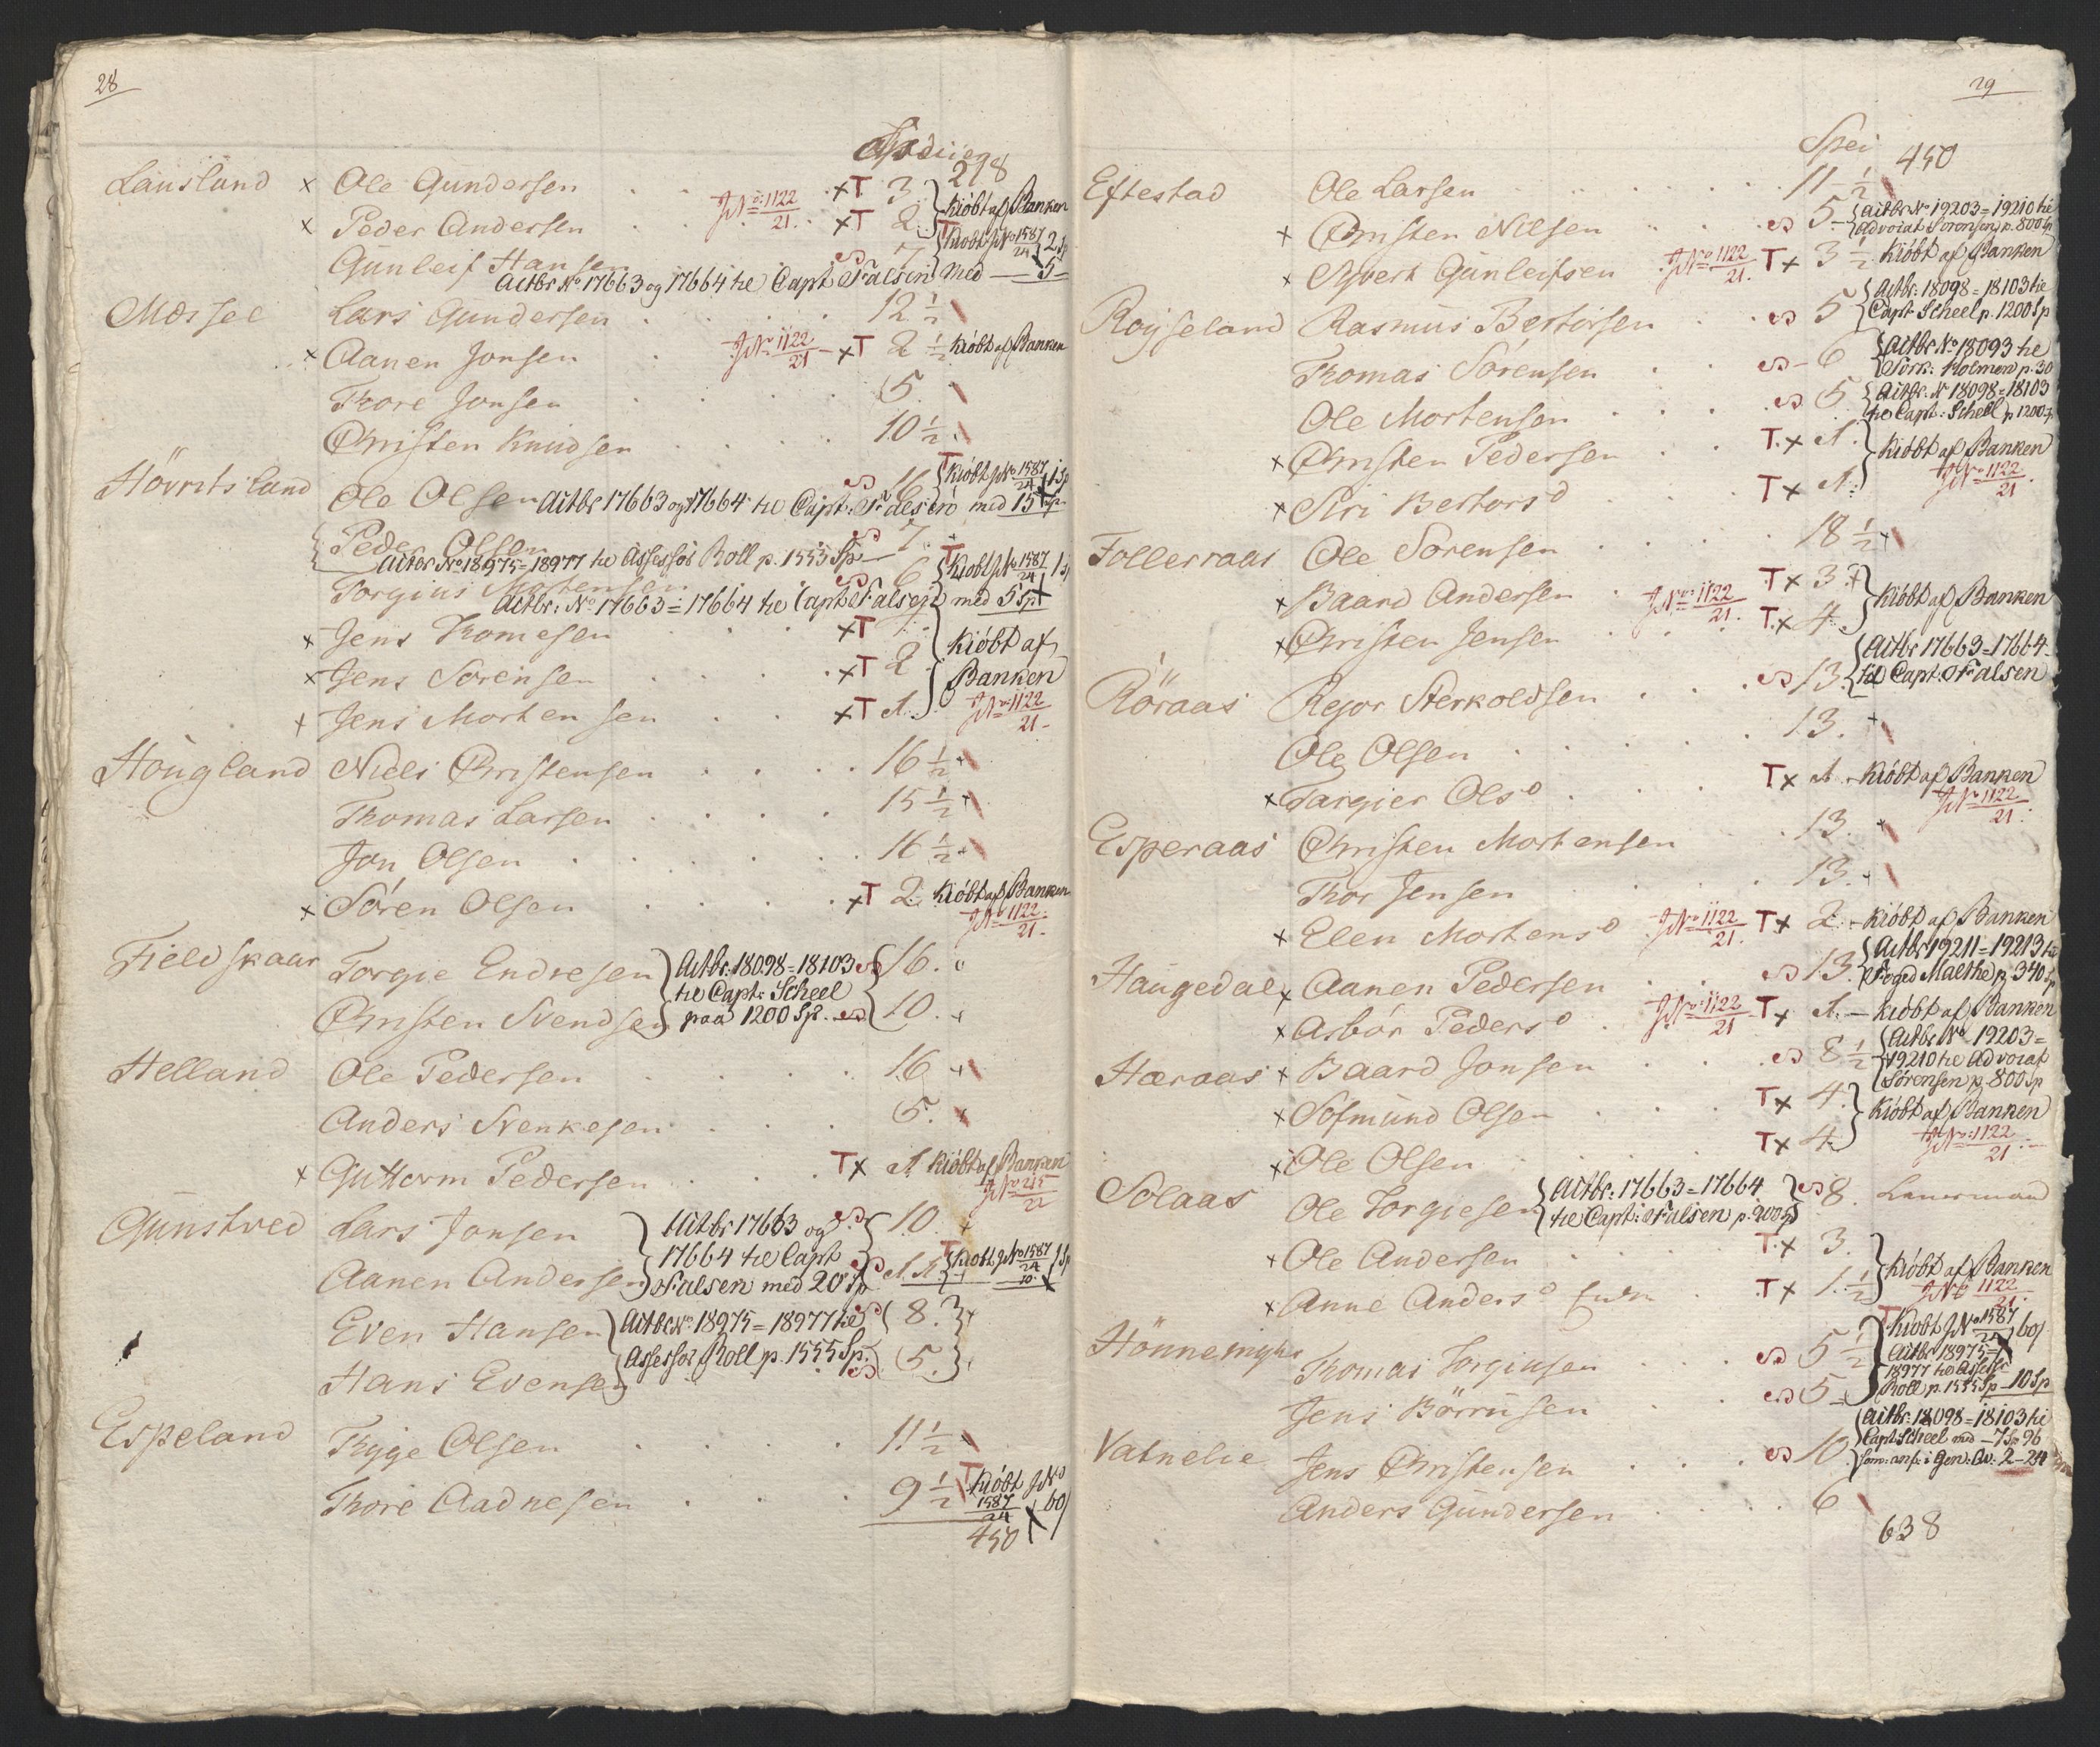 28
Spdlr
218
Lausland x Ole Gundersen . . xT 3 } Kiöbt af Banken
x Peder Andersen . . JNo 1122/21 . xT 2.
Gunleif Hansen . . 7 { Kiobt JNo 1587/24 } 2 Sp
Actbr No 17663 og 17664 til Capt Falsen med — 5 —
Mosfee Lars Gundersen . . 12 1/2
x Aanen Jonsen . JNr 1122/21 - xT 2 1/2 Kiöbt af Banken
Thore Jonsen . . . 5.
Christen Knudsen . . . 10 1/2.
Ole Olsen 16 { Kiöbt JNo 1587/24 } 1 Sp
Actbr 17663 og 17664 til Capt: med 15 Sp
Peder Olsen 7.
Actbr No 18975=18977 til Assessor Roll p. 1555 Sp
Torgius Mortensen 6 { Kiobt JNo 1587/24 1 Sp
Actbr: No 17663=17664 til Capt Falsen med 5 Sp
x Jens Thomesen . . . xT 1 } Kiöbt af
x Jens Sörensen . . . xT 2 Banken
x Jens Mortensen . . xT 1. JNr 1122/21 -
Hougland Niels Christensen . . . 16 1/2
Thomas Larsen . . . 15 1/2
Jon Olsen . . . . 16 1/2
x Sören Olsen . . . xT 2. Kiöbt af Banken
JNo 1122/21.
Fieldskaar Torgie Endresen } Actbr: 18098=18103 { 16.
til Capt: Scheel
Christen Svendsen } paa 1200 Sp. { 10.
Helland Ole Pedersen . . . 16
Anders Svenkesen . . . 5.
x Guttorm Pedersen . . . Tx 1 Kiöbt af Banken
JNo 215/22
Gunstved Lars Jonsen } Actbr 17663 og { 10.
17664 til Capt
Aanen Andersen } Falsen med 20 Sp 11 { Kiobt JNo 1587/24 1 Sp
10
Even Hansen } Actbr No 18975=18977 til { 8. }
Assessor Roll p. 1555 Sp.
Hans Evensen 5.
Espeland Thyge Olsen . . . 11 1/2
Thore Aadnesen . . . 9 1/2 Kiöbt JNo
1587/24 60
450
29
Spei
450
Eftestad Ole Larsen . . . . 11 1/2
x Christen Nilsen . . 5 - { Actbr No 19203=19210 til
Advocat Sörensen p. 800 Sp
x Syvert Gunleifsen . JNo 1122/21 Tx 3 1/2 Kiöbt af Banken
Royseland Rasmus Bertorsen . . 5 { Actbr: 18098=18103 til
Capt Scheel p. 1200 Sp
Thomas Sörensen . . - 6 { Actbr No 18093 til
Holmen p. 30
Ole Mortensen . . . 5 { Actbr. N 18098=18103
til Capt: Scheel p. 1200 Sp
x Christen Pedersen . . T.x 1. } Kiöbt af Banken
x Siri Bertorsd . . . Tx 1. JNo 1122/21.
Follerraas Ole Sörensen . . . . 18 1/2
x Baard Andersen . JNo 1122/21. Tx 3. } Kiöbt af Banken
x Christen Jensen . . . T.x 4.
Röraas Rejor Sterkoldsen . . . 13. { Actbr 17663=17664
til Capt: Falsen
Ole Olsen . . . . . 13.
x Targier Olsd . . . Tx 1. - Kiöbt af Banken
JNo 1122/21.
Esperaas Christen Mortensen . 13.
Thor Jensen . . . . 13.
x Elen Mortensd . JNo 1122/21. Tx 2. - Kiöbt af Banken
Haugedal x Aanen Pedersen . . 13. { Actbr 19211=19213 til
Foged Malthe p. 340 Sp
x Asbör Pedersd . JNo 1122/21 Tx 1. — Kiöbt af Banken
Hæraas x Baard Jonsen . . . 8 1/2 { Actbr No 19203=
19210 til Advocat
Sörensen p. 800 Sp
x Sofmund Olsen . . . Tx 4. } Kiöbt af Banken
x Ole Olsen . . . . Tx 4. JNo: 1122/21
Solaas Ole Torgiesen { Actbr: 17663=17664 } 8. Lensmand
til Capt: Falsen p. 900 Sp
x Ole Andersen . . . . T.x 3. } Kiöbt af Banken
x Anne Andersd Enke . . T.x 1 1/2 JNo 1122/21.
Hönnemyhr Thomas Torgiusen . . . 5 1/2 } Kiobt JNo 1587/24 60
Actbr 18975=
18977 til Assess
Jens Börrüsen . . 5 Roll p. 1555 Sp - 10 Sp
Vatnelie Jens Christensen . . . 10. { Actbr: 18098=18103 til
Capt: Scheel med - 7 Sp 96
Som: anf: i Gen: Bv: 2-24
Anders Gundersen . . . 6
638